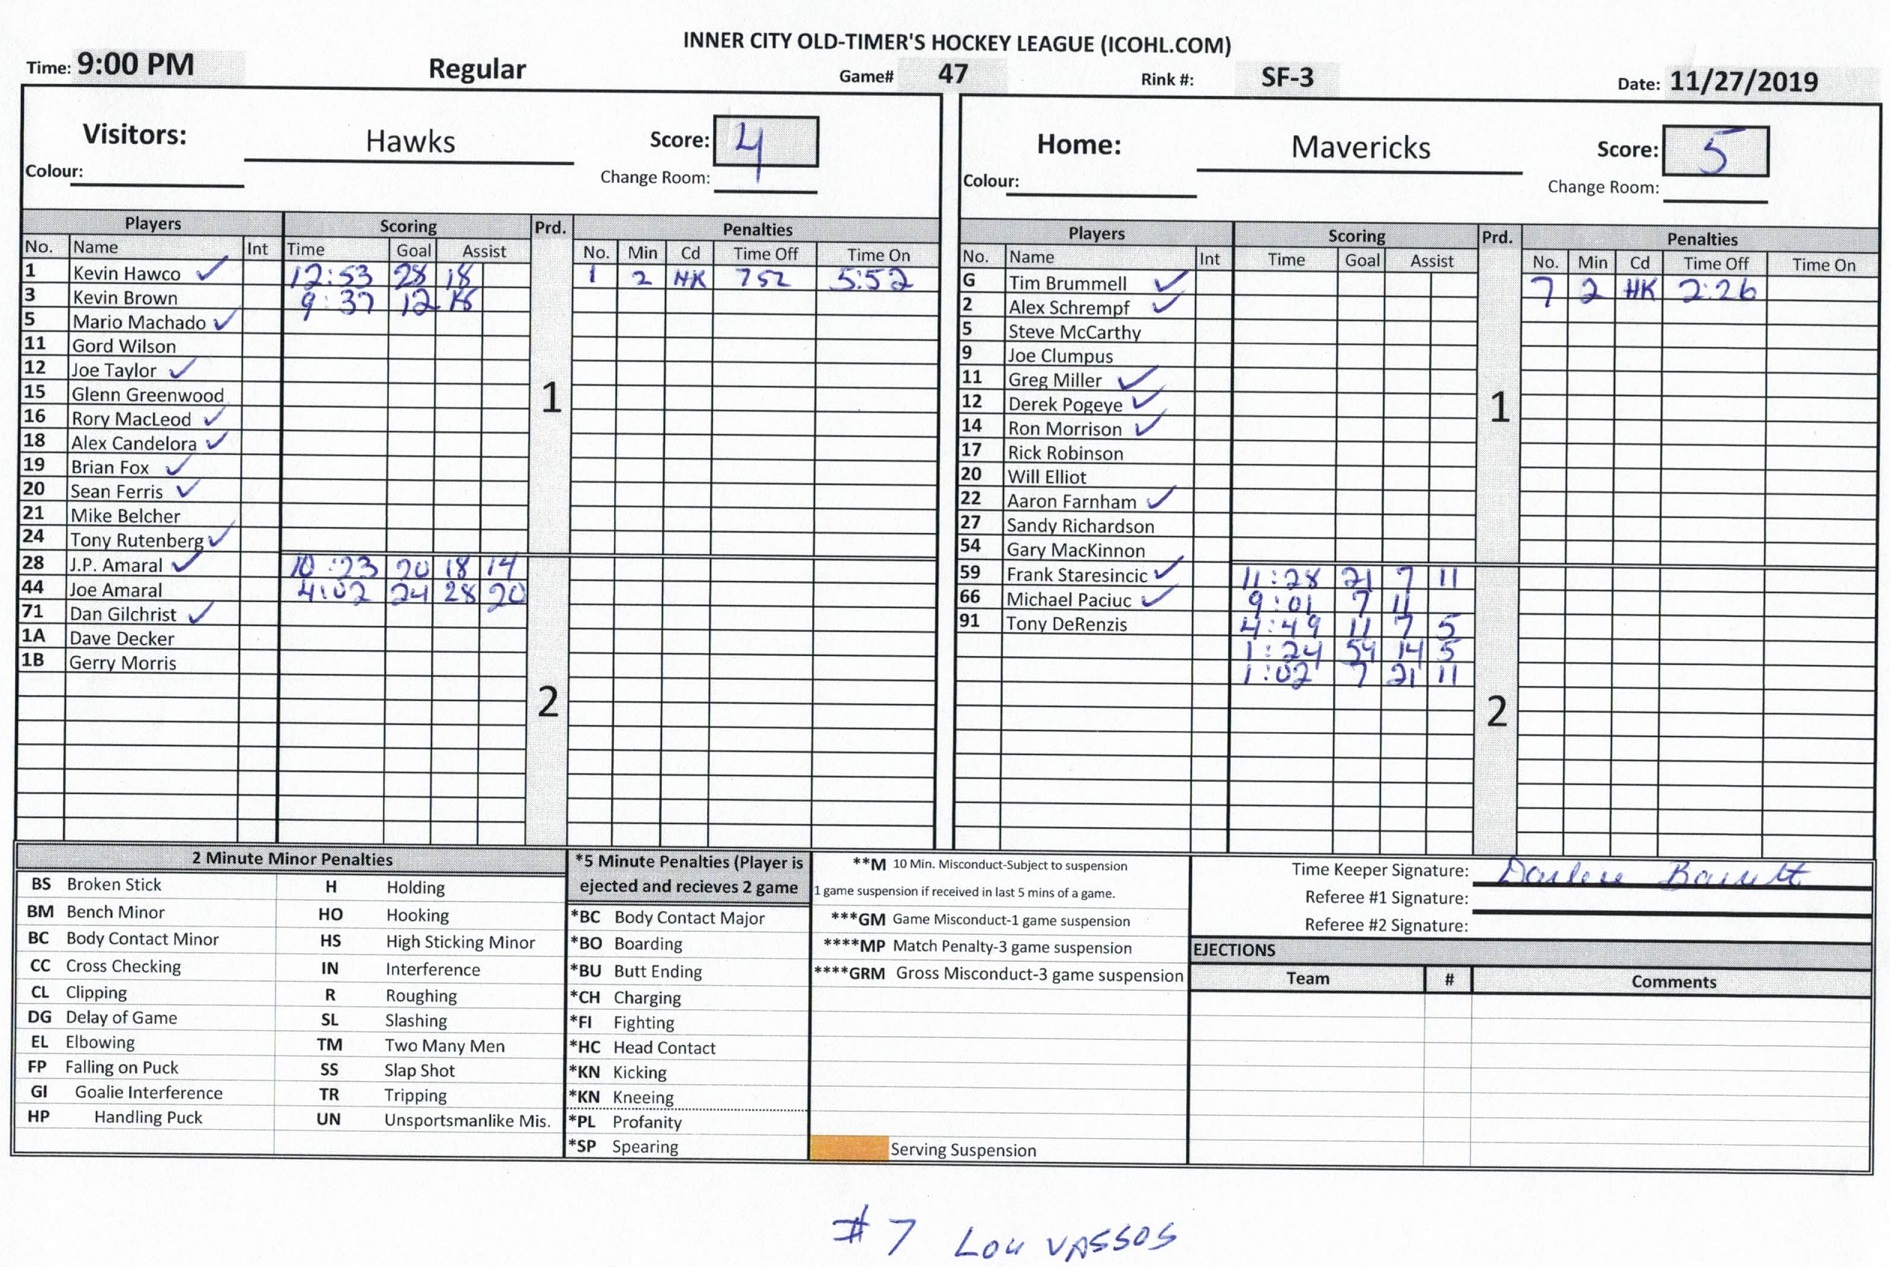 INNER CITY OLD-TIMER'S HOCKEY LEAGUE (ICOHL.COM)
Time: 9:00 PM Regular Game# 47 Rink #: SF-3 Date: 11/27/2019
Visitors: Hawks Score: 4
Colour: Change Room:
Players Scoring Prd. Penalties
No. Name Int Time Goal Assist No. Min Cd Time Off Time On
1 Kevin Hawco ✓ 12:53 28 18 1 2 HK 752 5:52
3 Kevin Brown 9:37 12 18
5 Mario Machado ✓
11 Gord Wilson
12 Joe Taylor ✓
1
15 Glenn Greenwood
16 Rory MacLeod ✓
18 Alex Candelora ✓
19 Brian Fox ✓
20 Sean Ferris ✓
21 Mike Belcher
24 Tony Rutenberg ✓
28 J.P. Amaral ✓ 10:23 20 18 14
44 Joe Amaral 4:02 24 28 20
71 Dan Gilchrist ✓
1A Dave Decker
1B Gerry Morris
2
Home: Mavericks Score: 5
Colour: Change Room:
Players Scoring Prd. Penalties
No. Name Int Time Goal Assist No. Min Cd Time Off Time On
G Tim Brummell ✓ 7 2 HK 2:26
2 Alex Schrempf ✓
5 Steve McCarthy
9 Joe Clumpus
11 Greg Miller ✓
12 Derek Pogeye ✓
1
14 Ron Morrison ✓
17 Rick Robinson
20 Will Elliot
22 Aaron Farnham ✓
27 Sandy Richardson
54 Gary MacKinnon
59 Frank Staresincic ✓ 11:28 21 7 11
66 Michael Paciuc ✓ 9:01 7 11
91 Tony DeRenzis 4:49 11 7 5
1:24 59 14 5
1:02 7 21 11
2
2 Minute Minor Penalties
BS Broken Stick H Holding
BM Bench Minor HO Hooking
BC Body Contact Minor HS High Sticking Minor
CC Cross Checking IN Interference
CL Clipping R Roughing
DG Delay of Game SL Slashing
EL Elbowing TM Two Many Men
FP Falling on Puck SS Slap Shot
GI Goalie Interference TR Tripping
HP Handling Puck UN Unsportsmanlike Mis.
*5 Minute Penalties (Player is
ejected and recieves 2 game
*BC Body Contact Major
*BO Boarding
*BU Butt Ending
*CH Charging
*FI Fighting
*HC Head Contact
*KN Kicking
*KN Kneeing
*PL Profanity
*SP Spearing
**M 10 Min. Misconduct-Subject to suspension
1 game suspension if received in last 5 mins of a game.
***GM Game Misconduct-1 game suspension
****MP Match Penalty-3 game suspension
****GRM Gross Misconduct-3 game suspension
Serving Suspension
Time Keeper Signature: Darlene
Referee #1 Signature:
Referee #2 Signature:
EJECTIONS
Team # Comments
#7 Lou VASSOS